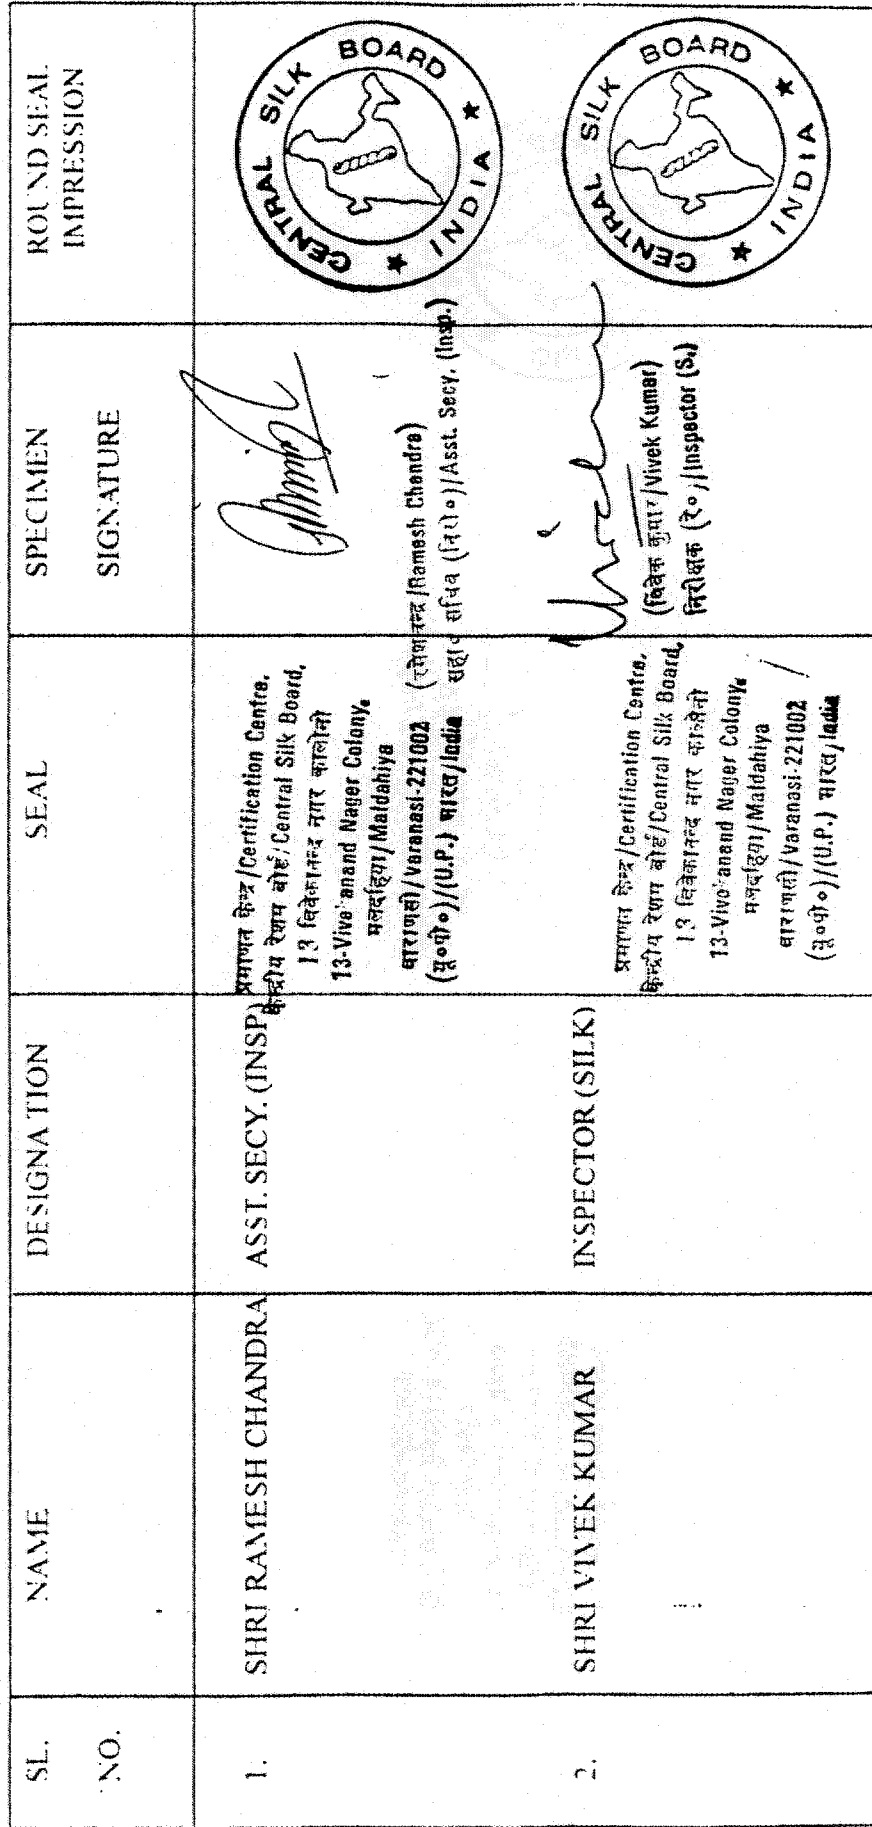 SL.
NO.
NAME
DESIGNATION
SEAL
SPECIMEN
SIGNATURE
ROUND SEAL
IMPRESSION
1.
SHRI RAMESH CHANDRA
ASST. SECY. (INSP)
प्रमाणन केन्द्र/Certification Centre.
केन्द्रीय रेशम बोर्ड/Central Silk Board,
13 विवेकानन्द नगर कालोनी
13-Vive anand Nager Colony,
मलदहिया/Maldahiya
वाराणसी/Varanasi-221002
(यू०पी०)/(U.P.) भारत/India
/Ramesh Chandra)
सचिव (निरी०)/Asst. Secy. (Insp.)
CENTRAL SILK BOARD
★ INDIA ★
2.
SHRI VIVEK KUMAR
INSPECTOR (SILK)
प्रमाणन केन्द्र/Certification Centre.
केन्द्रीय रेशम बोर्ड/Central Silk Board,
13 विवेकानन्द नगर कालोनी
13-Vivo anand Nager Colony,
मलदहिया/Maldahiya
वाराणसी/Varanasi-221002
(यू०पी०)/(U.P.) भारत/India
(विवेक कुमार/Vivek Kumar)
निरीक्षक (रे०)/Inspector (S.)
CENTRAL SILK BOARD
★ INDIA ★